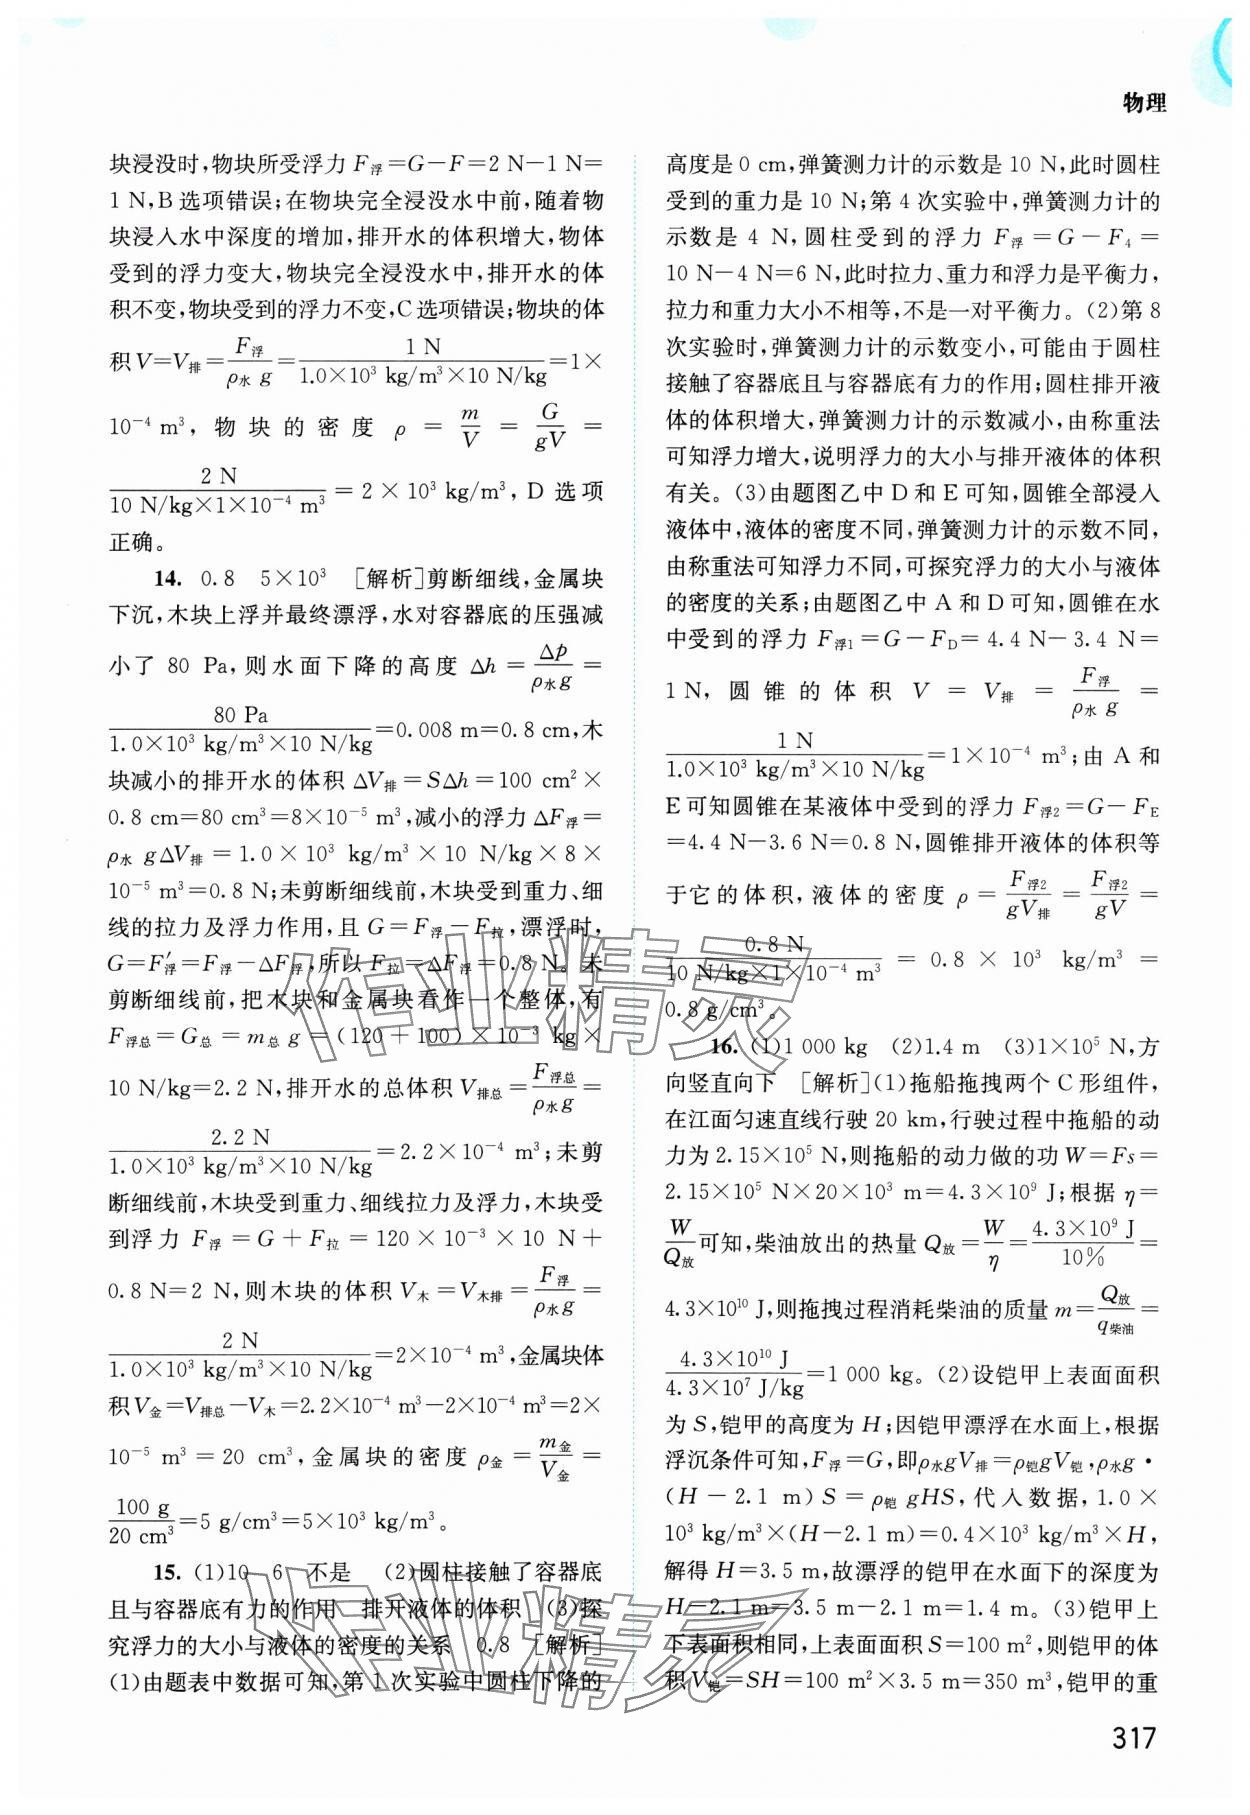 物理
块浸没时,物块所受浮力 F浮=G-F=2 N-1 N=
1 N,B 选项错误;在物块完全浸没水中前,随着物
块浸入水中深度的增加,排开水的体积增大,物体
受到的浮力变大,物块完全浸没水中,排开水的体
积不变,物块受到的浮力不变,C 选项错误;物块的体
积 V=V排=F浮/(ρ水 g)=1 N/(1.0×10³ kg/m³×10 N/kg)=1×
10⁻⁴ m³,物块的密度 ρ = m/V = G/(gV) =
2 N/(10 N/kg×1×10⁻⁴ m³) = 2×10³ kg/m³,D 选项
正确。
14. 0.8 5×10³ [解析]剪断细线,金属块
下沉,木块上浮并最终漂浮,水对容器底的压强减
小了 80 Pa,则水面下降的高度 Δh = Δp/(ρ水g) =
80 Pa/(1.0×10³ kg/m³×10 N/kg)=0.008 m=0.8 cm,木
块减小的排开水的体积 ΔV排=SΔh=100 cm²×
0.8 cm=80 cm³=8×10⁻⁵ m³,减小的浮力 ΔF浮=
ρ水 gΔV排=1.0×10³ kg/m³×10 N/kg×8×
10⁻⁵ m³=0.8 N;未剪断细线前,木块受到重力、细
线的拉力及浮力作用,且 G=F浮-F拉,漂浮时,
G=F′浮=F浮-ΔF浮,所以 F拉=ΔF浮=0.8 N。未
剪断细线前,把木块和金属块看作一个整体,有
F浮总=G总=m总 g=(120+100)×10⁻³ kg×
10 N/kg=2.2 N,排开水的总体积 V排总=F浮总/(ρ水g)=
2.2 N/(1.0×10³ kg/m³×10 N/kg)=2.2×10⁻⁴ m³;未剪
断细线前,木块受到重力、细线拉力及浮力,木块受
到浮力 F浮=G+F拉=120×10⁻³×10 N+
0.8 N=2 N,则木块的体积 V木=V木排=F浮/(ρ水g)=
2 N/(1.0×10³ kg/m³×10 N/kg)=2×10⁻⁴ m³,金属块体
积 V金=V排总-V木=2.2×10⁻⁴ m³-2×10⁻⁴ m³=2×
10⁻⁵ m³=20 cm³,金属块的密度 ρ金=m金/V金=
100 g/20 cm³=5 g/cm³=5×10³ kg/m³。
15. (1)10 6 不是 (2)圆柱接触了容器底
且与容器底有力的作用 排开液体的体积 (3)探
究浮力的大小与液体的密度的关系 0.8 [解析]
(1)由题表中数据可知,第 1 次实验中圆柱下降的
高度是 0 cm,弹簧测力计的示数是 10 N,此时圆柱
受到的重力是 10 N;第 4 次实验中,弹簧测力计的
示数是 4 N,圆柱受到的浮力 F浮=G-F₄=
10 N-4 N=6 N,此时拉力、重力和浮力是平衡力,
拉力和重力大小不相等,不是一对平衡力。(2)第 8
次实验时,弹簧测力计的示数变小,可能由于圆柱
接触了容器底且与容器底有力的作用;圆柱排开液
体的体积增大,弹簧测力计的示数减小,由称重法
可知浮力增大,说明浮力的大小与排开液体的体积
有关。(3)由题图乙中 D 和 E 可知,圆锥全部浸入
液体中,液体的密度不同,弹簧测力计的示数不同,
由称重法可知浮力不同,可探究浮力的大小与液体
的密度的关系;由题图乙中 A 和 D 可知,圆锥在水
中受到的浮力 F浮1=G-FD=4.4 N-3.4 N=
1 N,圆锥的体积 V = V排 = F浮/(ρ水 g) =
1 N/(1.0×10³ kg/m³×10 N/kg)=1×10⁻⁴ m³;由 A 和
E 可知圆锥在某液体中受到的浮力 F浮2=G-FE
=4.4 N-3.6 N=0.8 N,圆锥排开液体的体积等
于它的体积,液体的密度 ρ = F浮2/(gV排) = F浮2/(gV) =
0.8 N/(10 N/kg×1×10⁻⁴ m³) = 0.8 × 10³ kg/m³ =
0.8 g/cm³。
16. (1)1 000 kg (2)1.4 m (3)1×10⁵ N,方
向竖直向下 [解析](1)拖船拖拽两个 C 形组件,
在江面匀速直线行驶 20 km,行驶过程中拖船的动
力为 2.15×10⁵ N,则拖船的动力做的功 W=Fs=
2.15×10⁵ N×20×10³ m=4.3×10⁹ J;根据 η=
W/Q放可知,柴油放出的热量 Q放=W/η=4.3×10⁹ J/10%=
4.3×10¹⁰ J,则拖拽过程消耗柴油的质量 m=Q放/q柴油=
4.3×10¹⁰ J/(4.3×10⁷ J/kg)=1 000 kg。(2)设铠甲上表面面积
为 S,铠甲的高度为 H;因铠甲漂浮在水面上,根据
浮沉条件可知,F浮=G,即ρ水gV排=ρ铠gV铠,ρ水g·
(H-2.1 m)S=ρ铠 gHS,代入数据,1.0×
10³ kg/m³×(H-2.1 m)=0.4×10³ kg/m³×H,
解得 H=3.5 m,故漂浮的铠甲在水面下的深度为
H-2.1 m=3.5 m-2.1 m=1.4 m。(3)铠甲上
下表面积相同,上表面面积 S=100 m²,则铠甲的体
积V铠=SH=100 m²×3.5 m=350 m³,铠甲的重
317
作业精灵
作业精灵